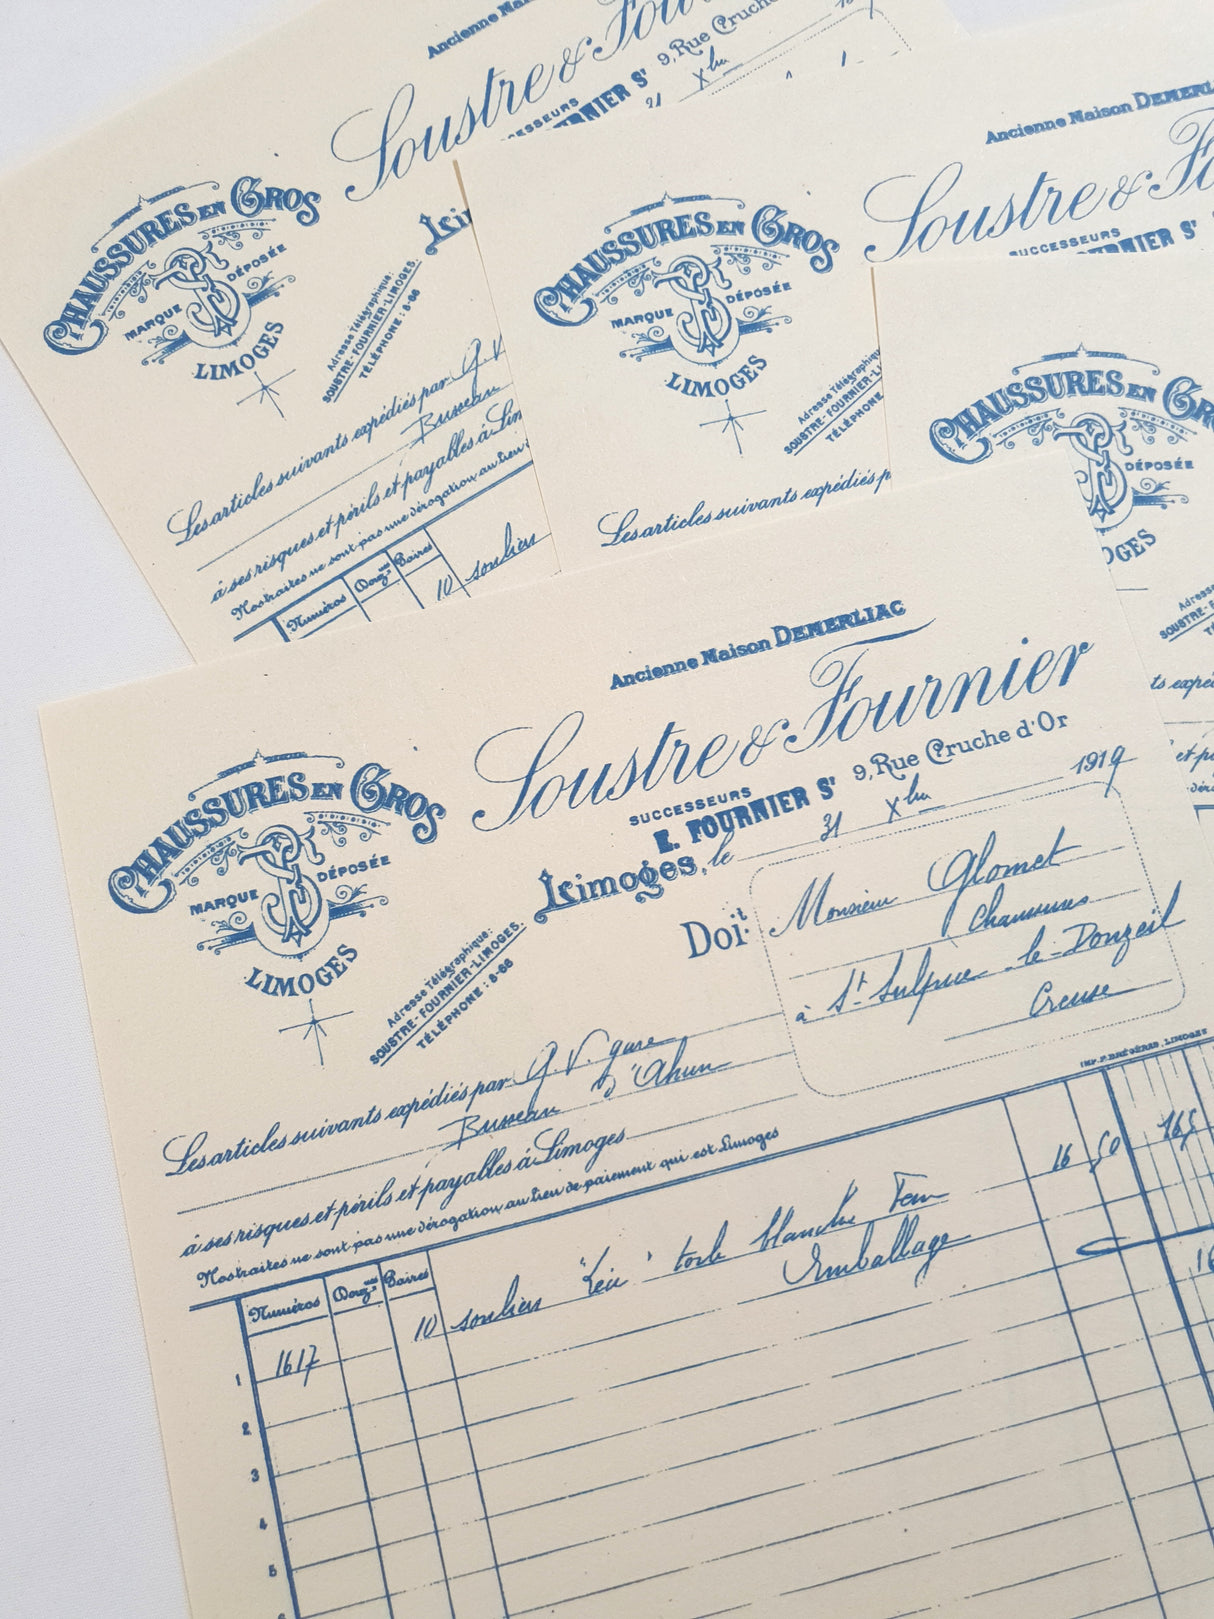 Ancienne Maison
Soustre & Fou
9, Rue Cruche
SUCCESSEURS
FOURNIER Sʳ
31 Xbre
CHAUSSURES EN GROS
MARQUE DÉPOSÉE
LIMOGES
Lim
Adresse Télégraphique:
SOUSTRE-FOURNIER-LIMOGES.
TÉLÉPHONE: 8-66
Les articles suivants expédiés par G. V
Busseau
à ses risques et périls et payables à Lim
Nos traites ne sont pas une dérogation au lieu
Numéros Douzⁿᵉˢ Paires
10 souliers
Ancienne Maison DEMERL
Soustre & Fo
SUCCESSEURS
FOURNIER Sʳ
CHAUSSURES EN GROS
MARQUE DÉPOSÉE
LIMOGES
Adresse Télégraphiq
SOUSTRE-FOURNIER-LI
TÉLÉPHONE
Les articles suivants expédiés p
CHAUSSURES EN GRO
DÉPOSÉE
OGES
Adresse
SOUSTRE-F
TÉ
ts expé
et pé
Ancienne Maison DEMERLIAC
Soustre & Fournier
SUCCESSEURS
E. FOURNIER Sʳ
9, Rue Cruche d'Or
Limoges, le 31 Xbre 1919
CHAUSSURES EN GROS
MARQUE DÉPOSÉE
LIMOGES
Adresse Télégraphique:
SOUSTRE-FOURNIER-LIMOGES.
TÉLÉPHONE: 8-66
Doit Monsieur Glomet
Chaussures
à St Sulpice le Donzeil
Creuse
Les articles suivants expédiés par G. V. gare
Busseau d'Ahun
à ses risques et périls et payables à Limoges
Nos traites ne sont pas une dérogation au lieu de paiement qui est Limoges
IMP. P. BRÉGÉRAS, LIMOGES
Numéros Douzⁿᵉˢ Paires
1 1617 10 souliers toile blanche 16 50 165
Emballage
16
2
3
4
5
6